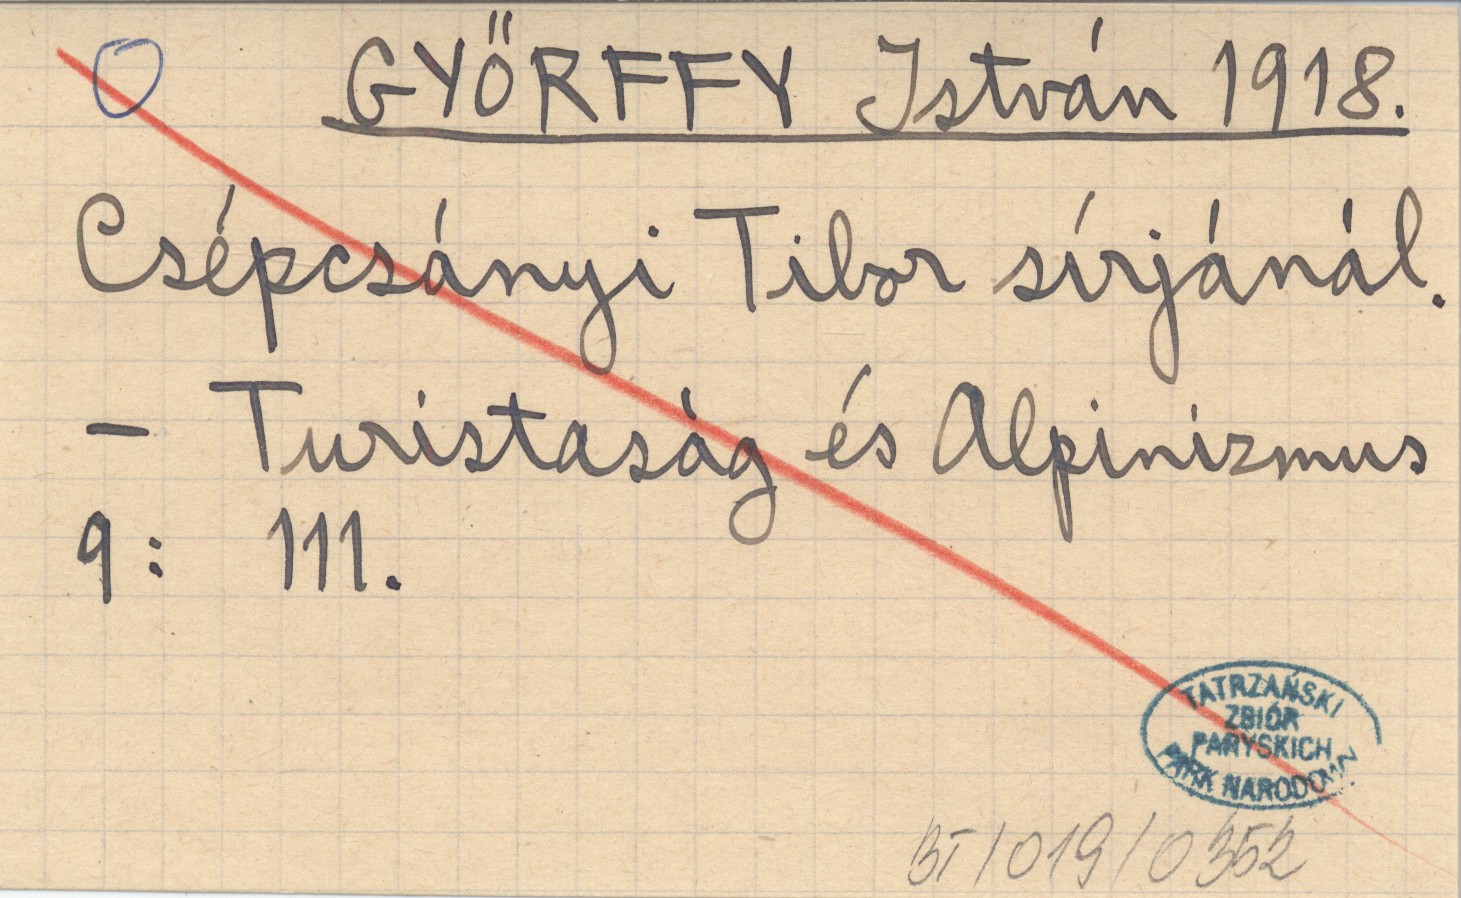 GYŐRFFY István 1918.
Csépcsányi Tibor sírjánál.
– Turistaság és Alpinizmus
9: 111.
TATRZAŃSKI
ZBIÓR
PARYSKICH
PARK NARODOWY
BT/019/0352